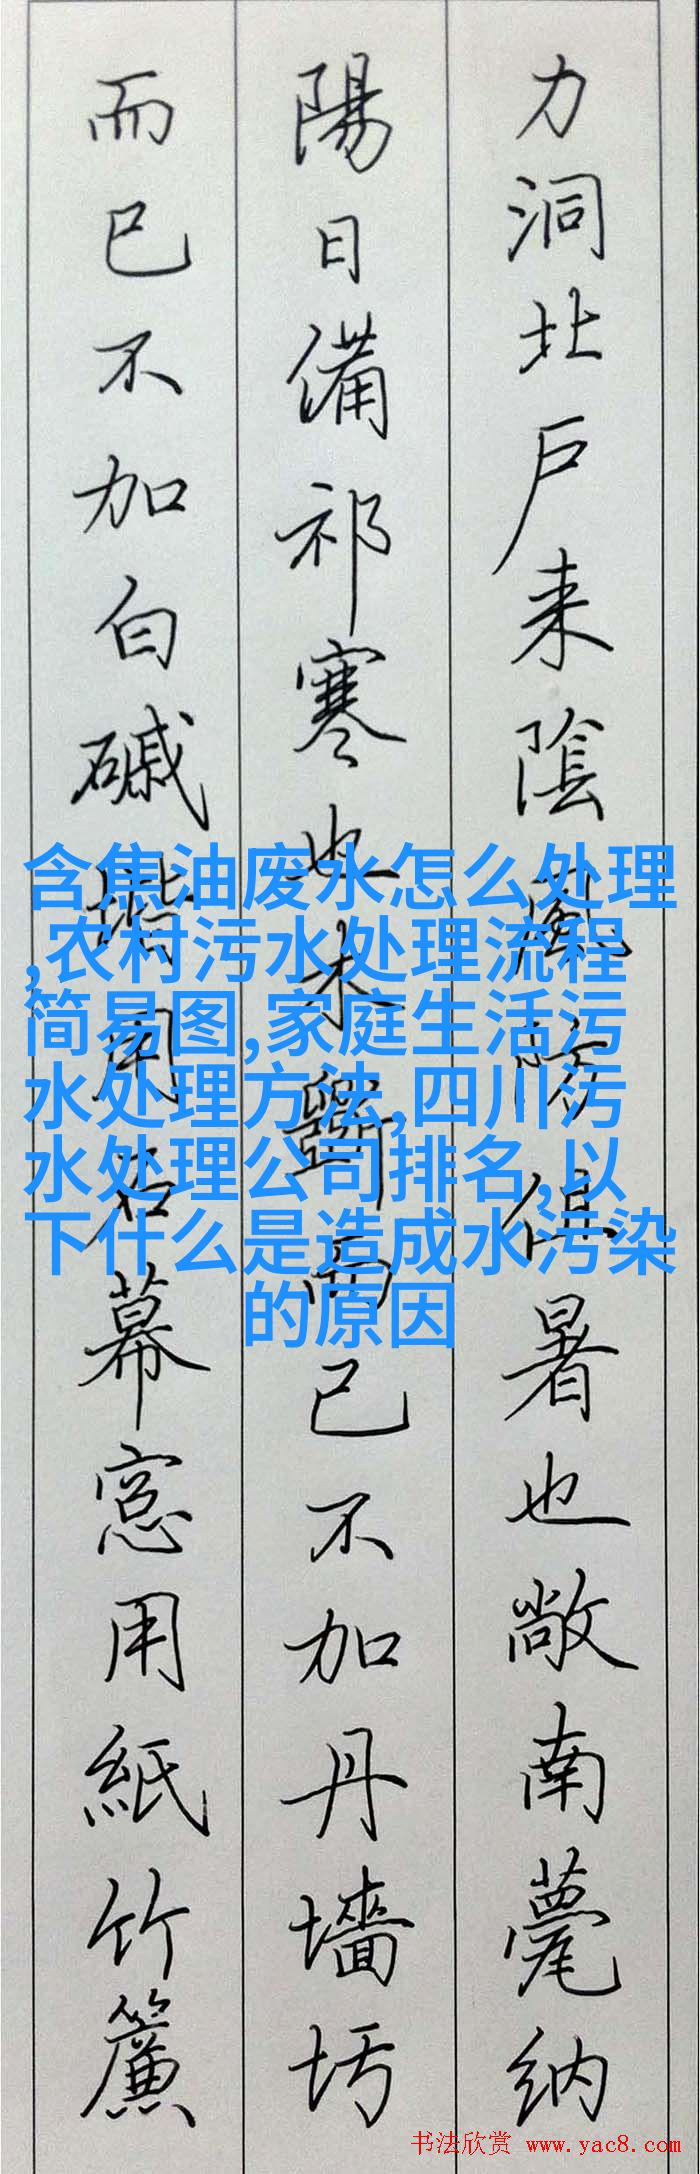 力洞北户来陰風防徂暑也敞南甍纳
陽日備祁寒也木斲而已不加丹墻圬
而已不加白磩堦用石幕窓用紙竹簾
含焦油废水怎么处理
,农村污水处理流程
简易图,家庭生活污
水处理方法,四川污
水处理公司排名,以
下什么是造成水污染
的原因
书法欣赏 www.yac8.com